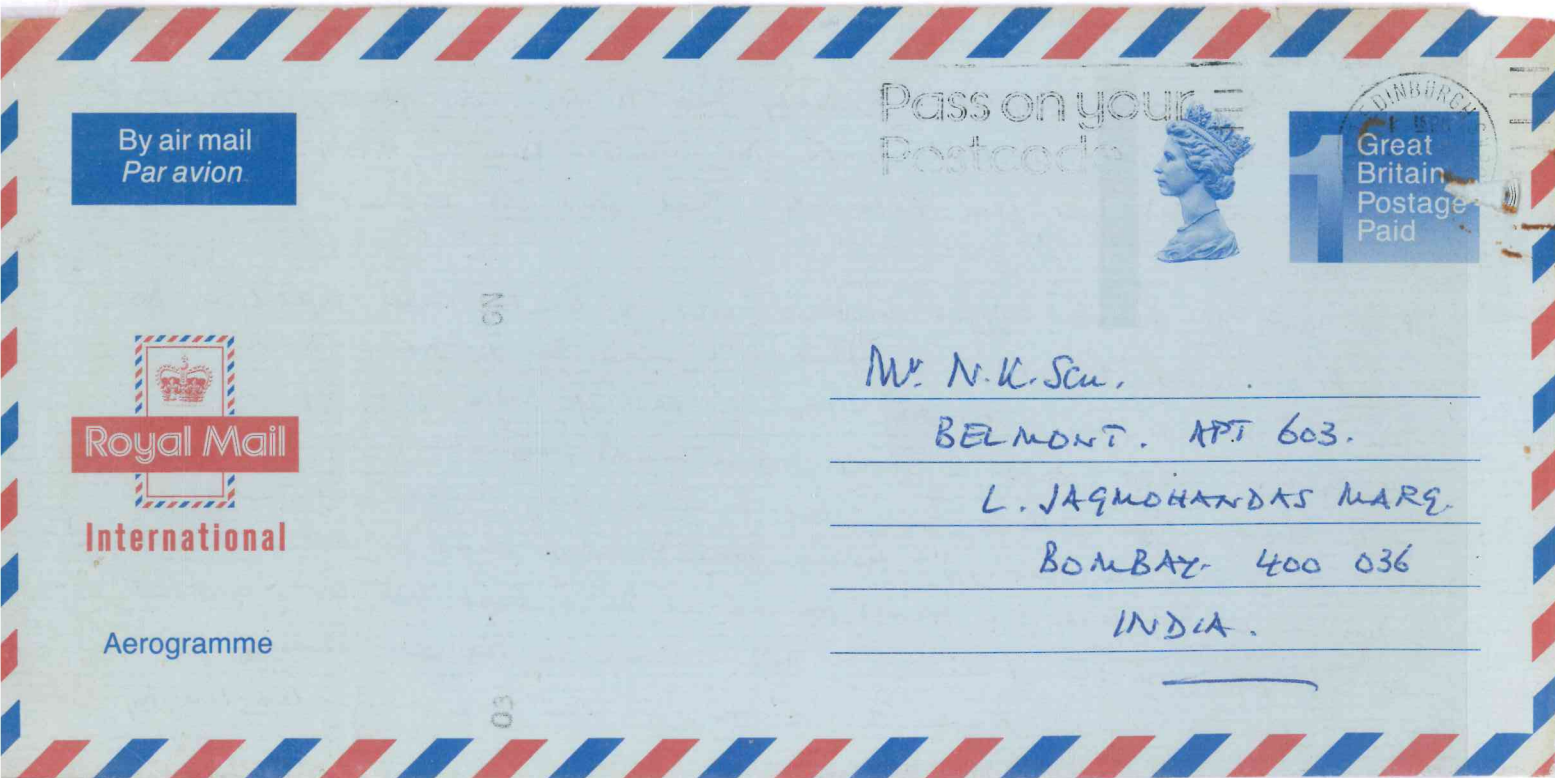 By air mail
Par avion
Pass on your
Postcode
EDINBURGH
1
Great
Britain
Postage
Paid
GN
Royal Mail
International
Aerogramme
03
Mr. N.K. Sen.
BELMONT. APT 603.
L. JAGMOHANDAS MARG.
BOMBAY- 400 036
INDIA.